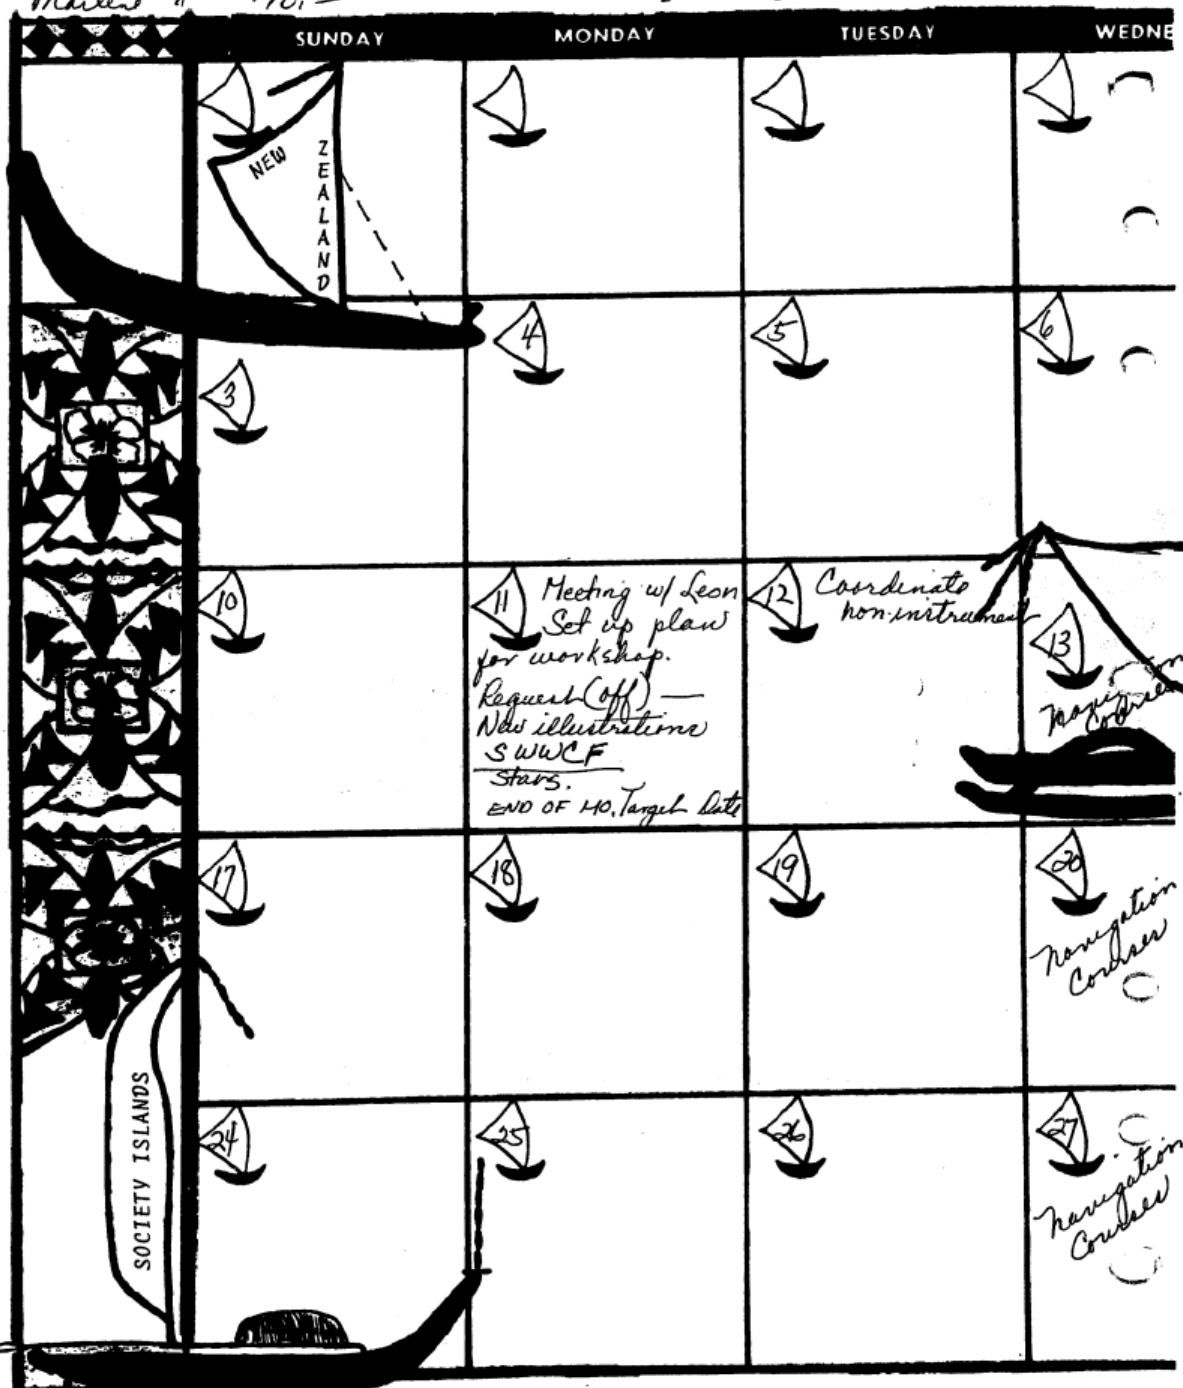 Marlene "
SUNDAY MONDAY TUESDAY WEDNE
NEW
ZEALAND
3
4
5
6
10
11 Meeting w/ Leon
Set up plan
for workshop.
Request (off) —
New illustrations
SWWCF
Stars.
END OF MO. Target Date
12 Coordinate
non-instrument
13
Navigation
Courses
17
18
19
20
Navigation
Courses
SOCIETY ISLANDS
24
25
26
27
Navigation
Courses